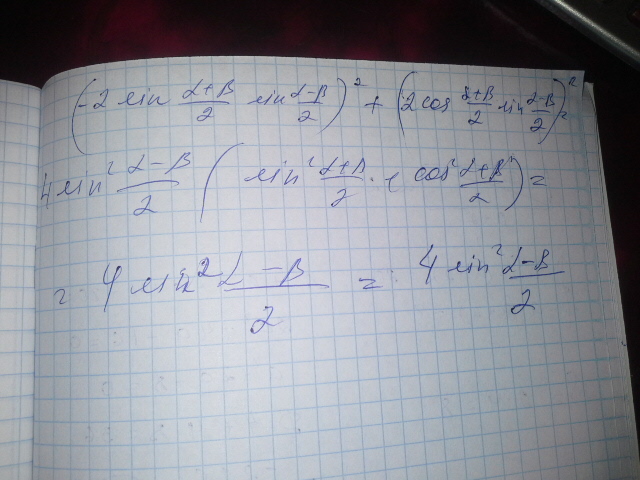 (-2 sin (α+β)/2 sin (α-β)/2)² + (2 cos (α+β)/2 sin (α-β)/2)² =
4 sin² (α-β)/2 (sin² (α+β)/2 + cos² (α+β)/2) =
= 4 sin² (α-β)/2 = 4 sin² (α-β)/2